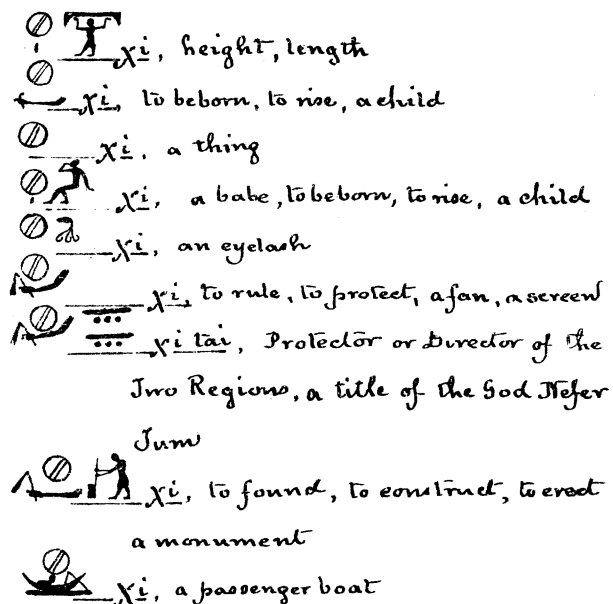 χi, height, length
χi, to be born, to rise, a child
χi, a thing
χi, a babe, to be born, to rise, a child
χi, an eyelash
χi, to rule, to protect, a fan, a screen
χi tai, Protector or Director of the
Two Regions, a title of the God Nefer
Tum
χi, to found, to construct, to erect
a monument
χi, a passenger boat